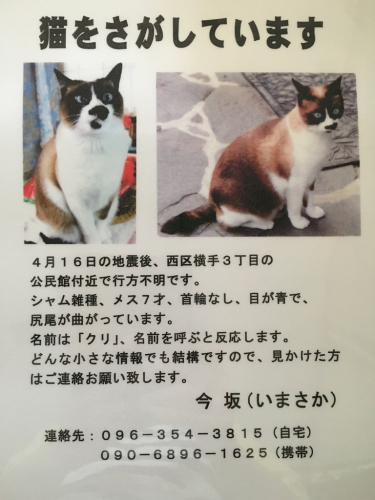 猫をさがしています
4月16日の地震後、西区横手3丁目の
公民館付近で行方不明です。
シャム雑種、メス7才、首輪なし、目が青で、
尻尾が曲がっています。
名前は「クリ」、名前を呼ぶと反応します。
どんな小さな情報でも結構ですので、見かけた方
はご連絡お願い致します。
今 坂(いまさか)
連絡先:096-354-3815(自宅)
090-6896-1625(携帯)